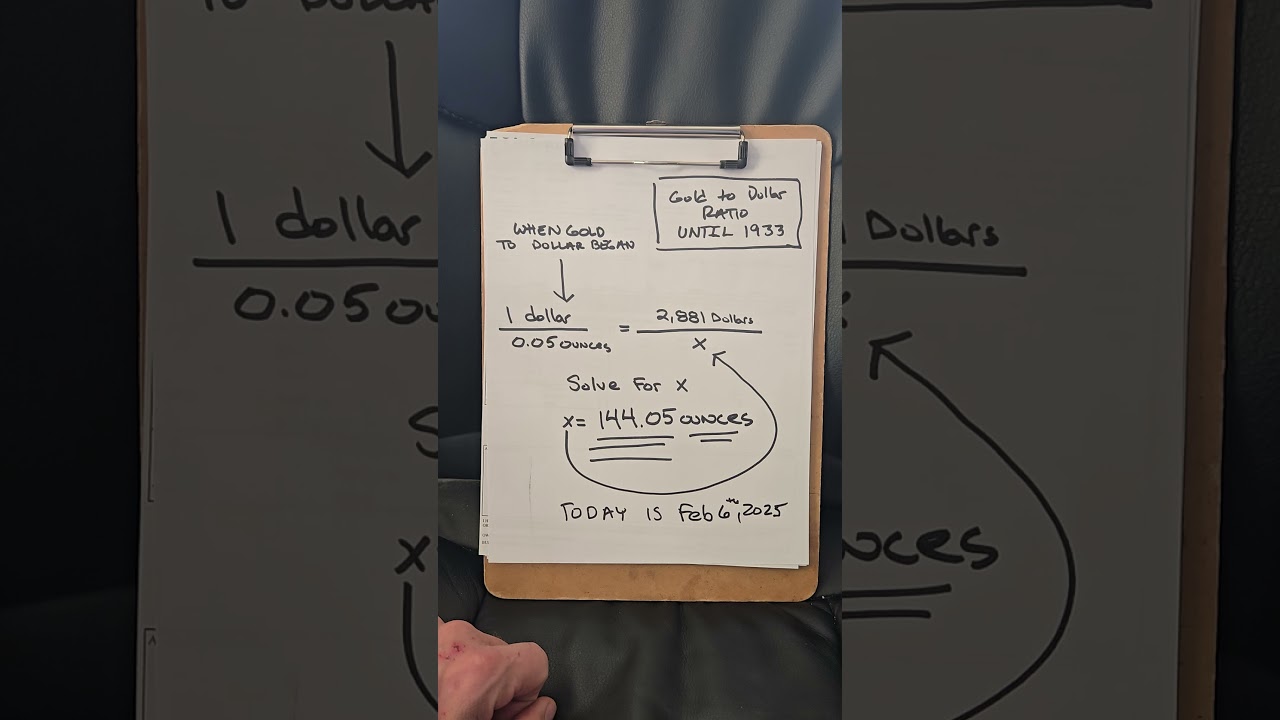 Gold to Dollar
RATIO
UNTIL 1933
WHEN GOLD
TO DOLLAR BEGAN
1 dollar
0.05 ounces
=
2,881 Dollars
x
Solve For x
x = 144.05 ounces
TODAY IS Feb 6th, 2025
1 dollar
0.05 ou
Dollars
x
ounces
A